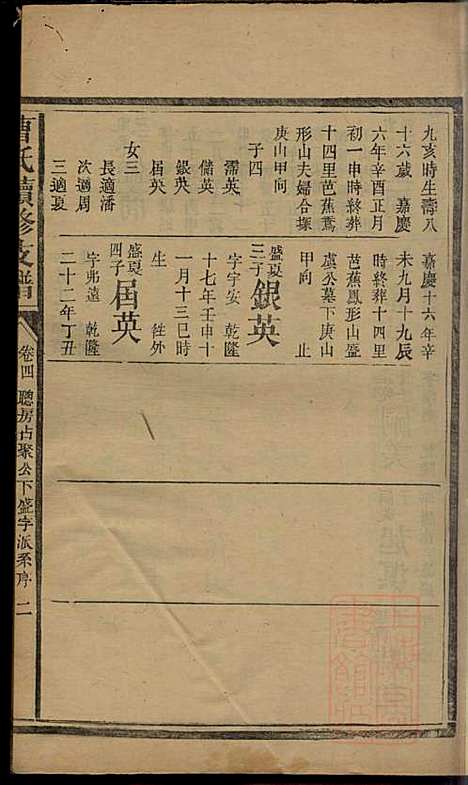 九亥時生壽八
十六歲　嘉慶
六年辛酉正月
初一申時終葬
十四里芭蕉鳶
形山夫婦合塚
庚山甲向
子四
濡英
儲英
銀英
届英
女三
長適潘
次適周
三適夏
嘉慶十六年辛
未九月十九辰
時終葬十四里
芭蕉鳳形山盛
虞公墓下庚山
甲向　止
盛夏三子　銀英
字守安　乾隆
十七年壬申十
一月十三巳時
生　　往外
盛夏四子　届英
字弗遠　乾隆
二十二年丁丑
曹氏續修支譜
卷四　聰房占聚公下盛字派系序　二